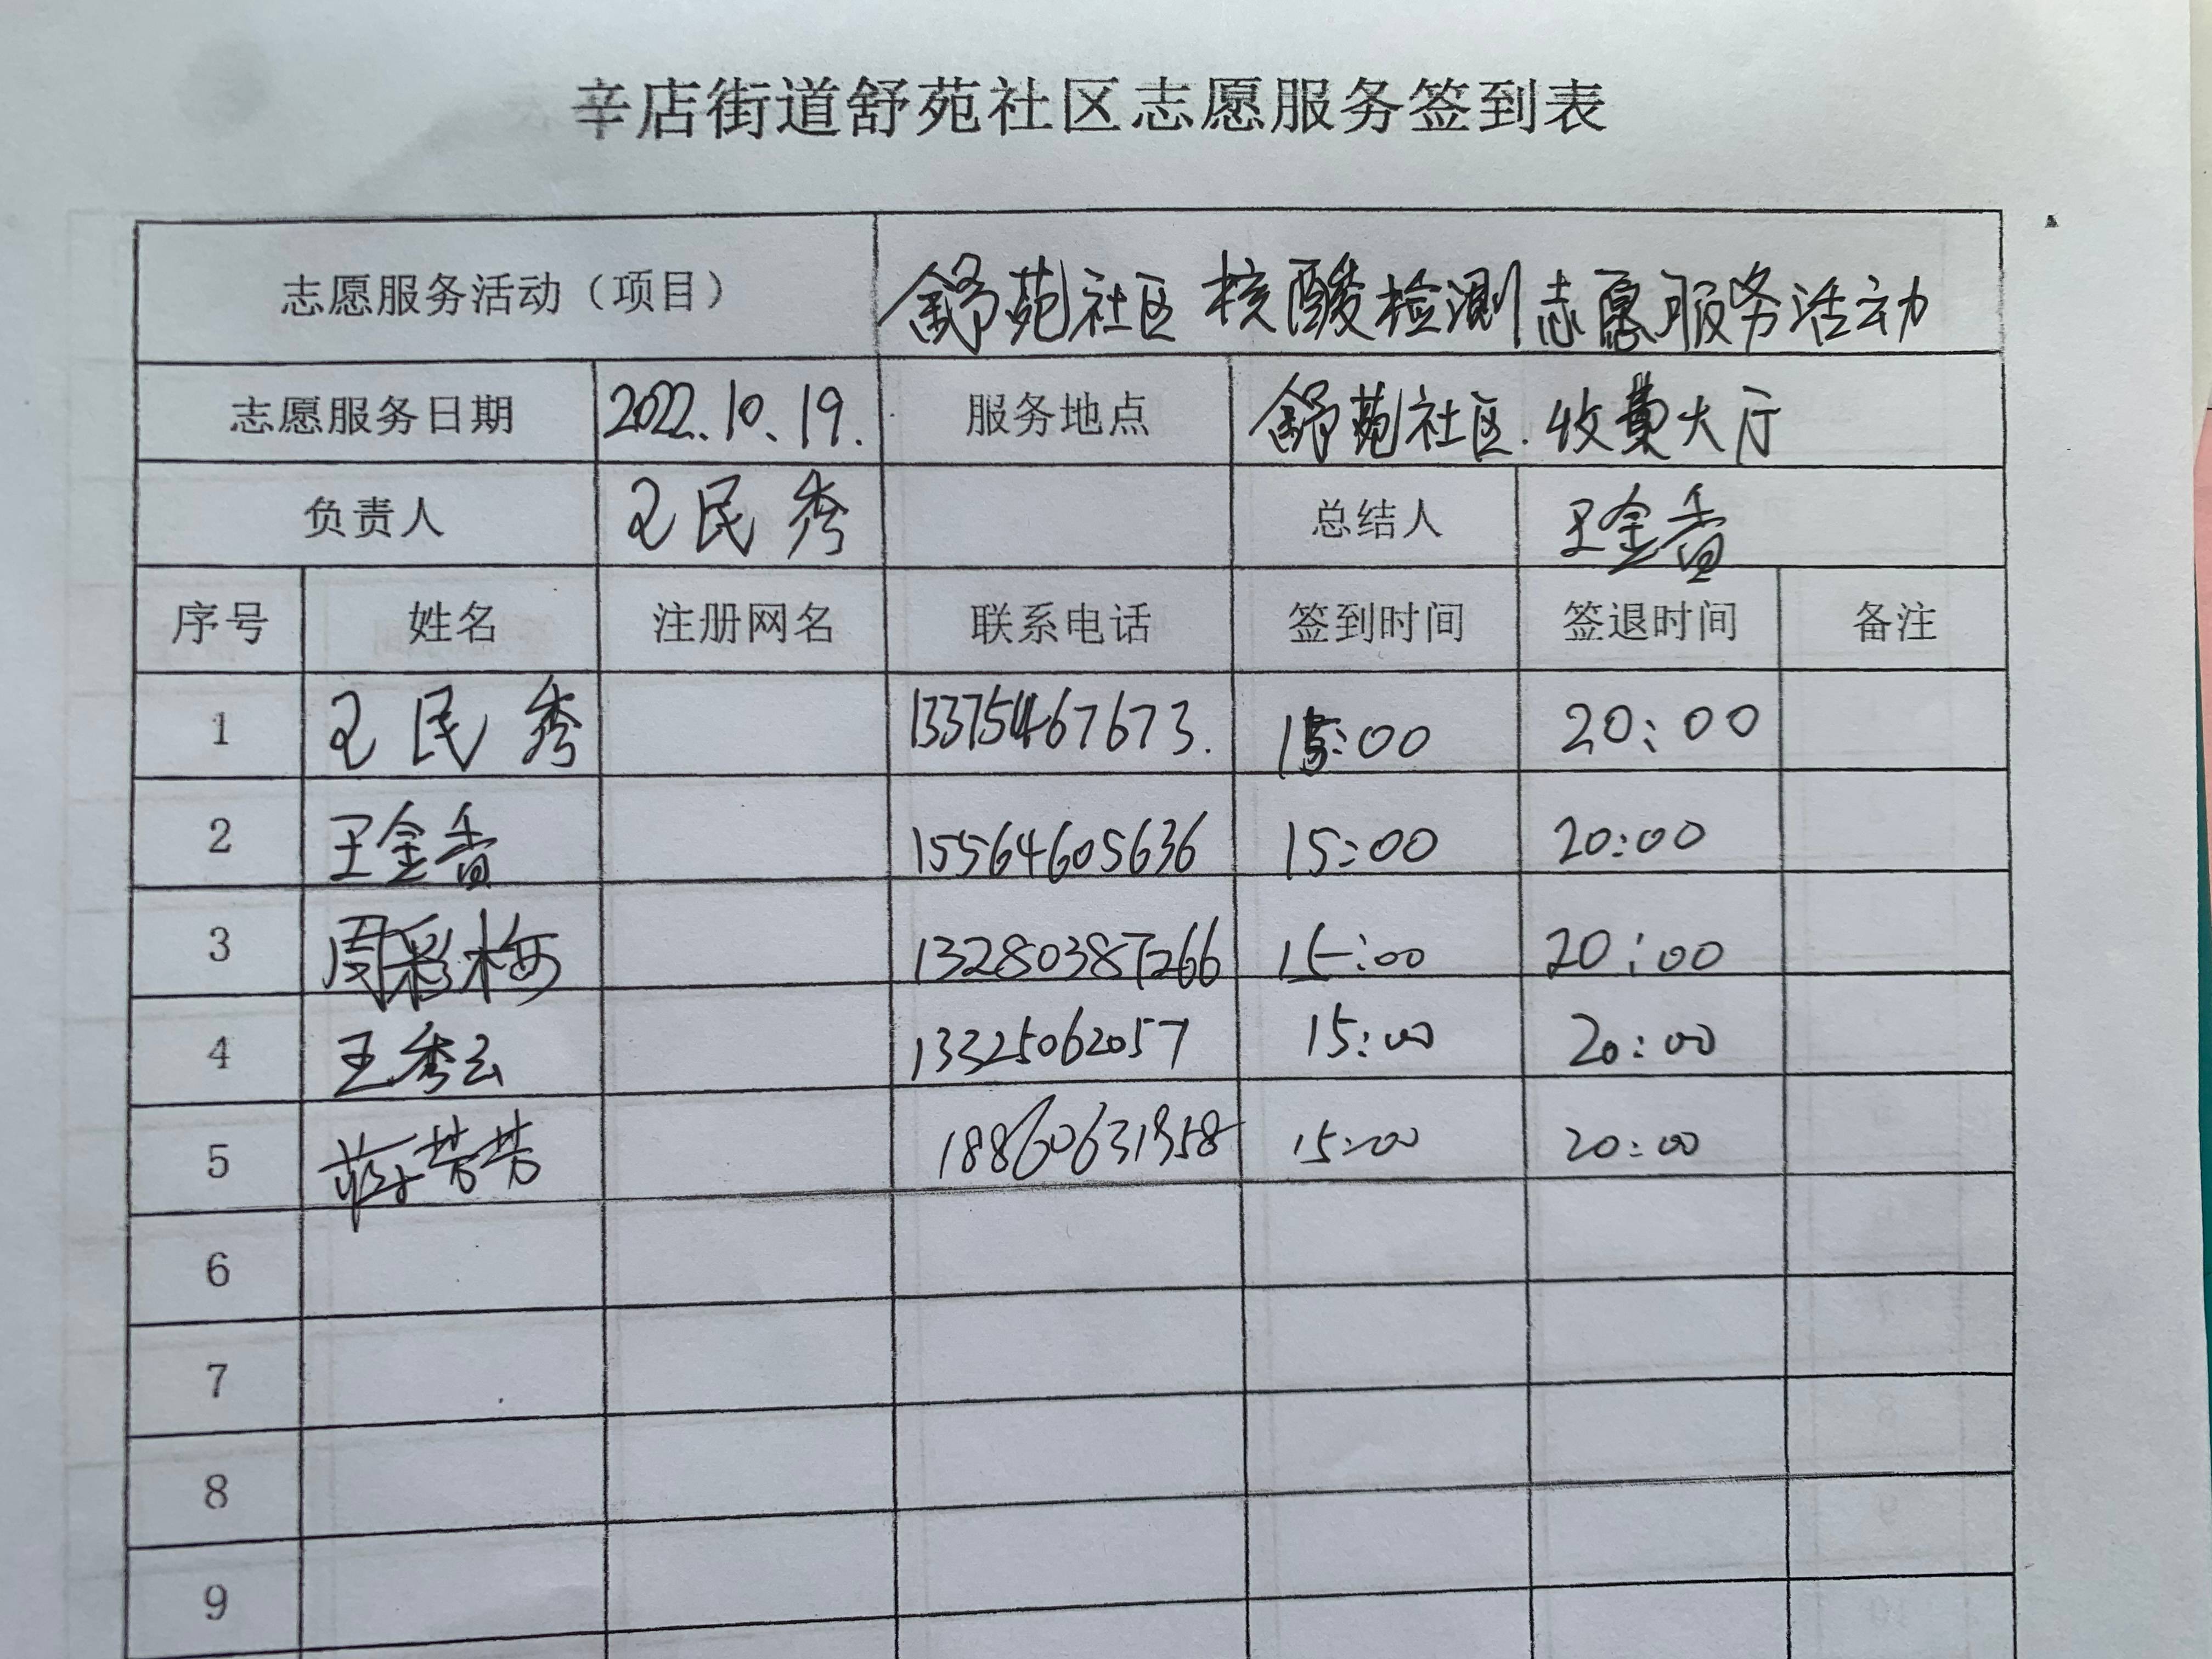 辛店街道舒苑社区志愿服务签到表
志愿服务活动（项目） 舒苑社区核酸检测志愿服务活动
志愿服务日期 2022.10.19. 服务地点 舒苑社区.收费大厅
负责人 王民秀 总结人 王金香
序号 姓名 注册网名 联系电话 签到时间 签退时间 备注
1 王民秀 13375467673. 15:00 20:00
2 王金香 15564605636 15:00 20:00
3 周彩梅 13280387266 15:00 20:00
4 王秀云 13325062057 15:00 20:00
5 蒋芳芳 18860631958 15:00 20:00
6
7
8
9